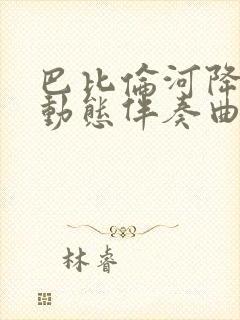 巴比倫河降
動態伴奏曲
林睿